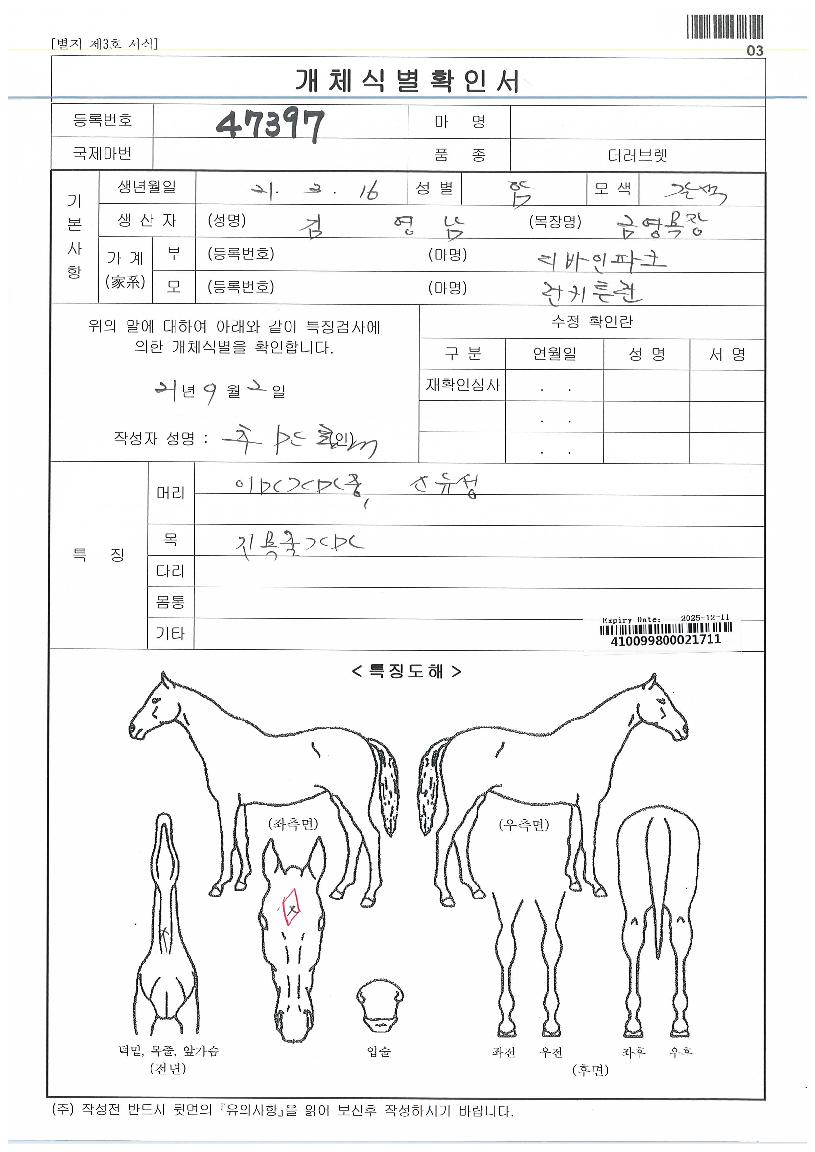 [별지 제3호 서식]
03
개체식별확인서
등록번호 47397 마 명
국제마번 품 종 더러브렛
기본사항
생년월일 21. 3. 16 성 별 암 모 색 갈색
생 산 자 (성명) 김 영 남 (목장명) 금영목장
가 계 (家系) 부 (등록번호) (마명) 디바인파크
모 (등록번호) (마명)
위의 말에 대하여 아래와 같이 특징검사에
의한 개체식별을 확인합니다.
21년 9월 2일
작성자 성명 : (인)
수정 확인란
구 분 연월일 성 명 서 명
재확인심사 . .
. .
. .
특 징
머리
목
다리
몸통
기타
Expiry Date: 2025-12-11
410099800021711
< 특징도해 >
(좌측면) (우측면)
턱밑, 목줄, 앞가슴
(전년)
입술
좌전 우전 좌후 우후
(후면)
(주) 작성전 반드시 뒷면의 『유의사항』을 읽어 보신후 작성하시기 바랍니다.